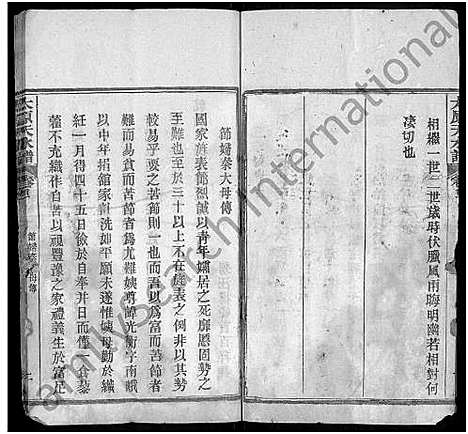 相繼一世二世歲時伏臘風雨晦明幽若相對何
凄切也
節婦秦大母傳
國家旌表節烈誠以青年孀居之死靡慝固勢之
至難也至於三十以上不在旌表之例非以其勢
較易乎要之苦節則一也以為富而苦節者
難而貧而苦節者為尤難姨
以中年捐館家計洗如平願未遂惟姨母勤於織
紅一月得四十五日儉於自奉并日而食一
藿不充纖作自苦以視豐豫之家禮義生於富足
太原天水譜
卷首
節婦秦大母傳
太原天水譜
Family Search International